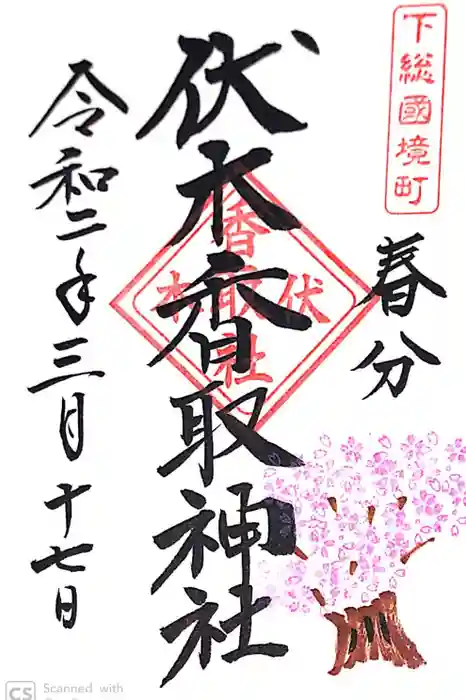 下総國境町
春分
伏木香取神社
香取社
伏木
令和二年三月十七日
CS Scanned with